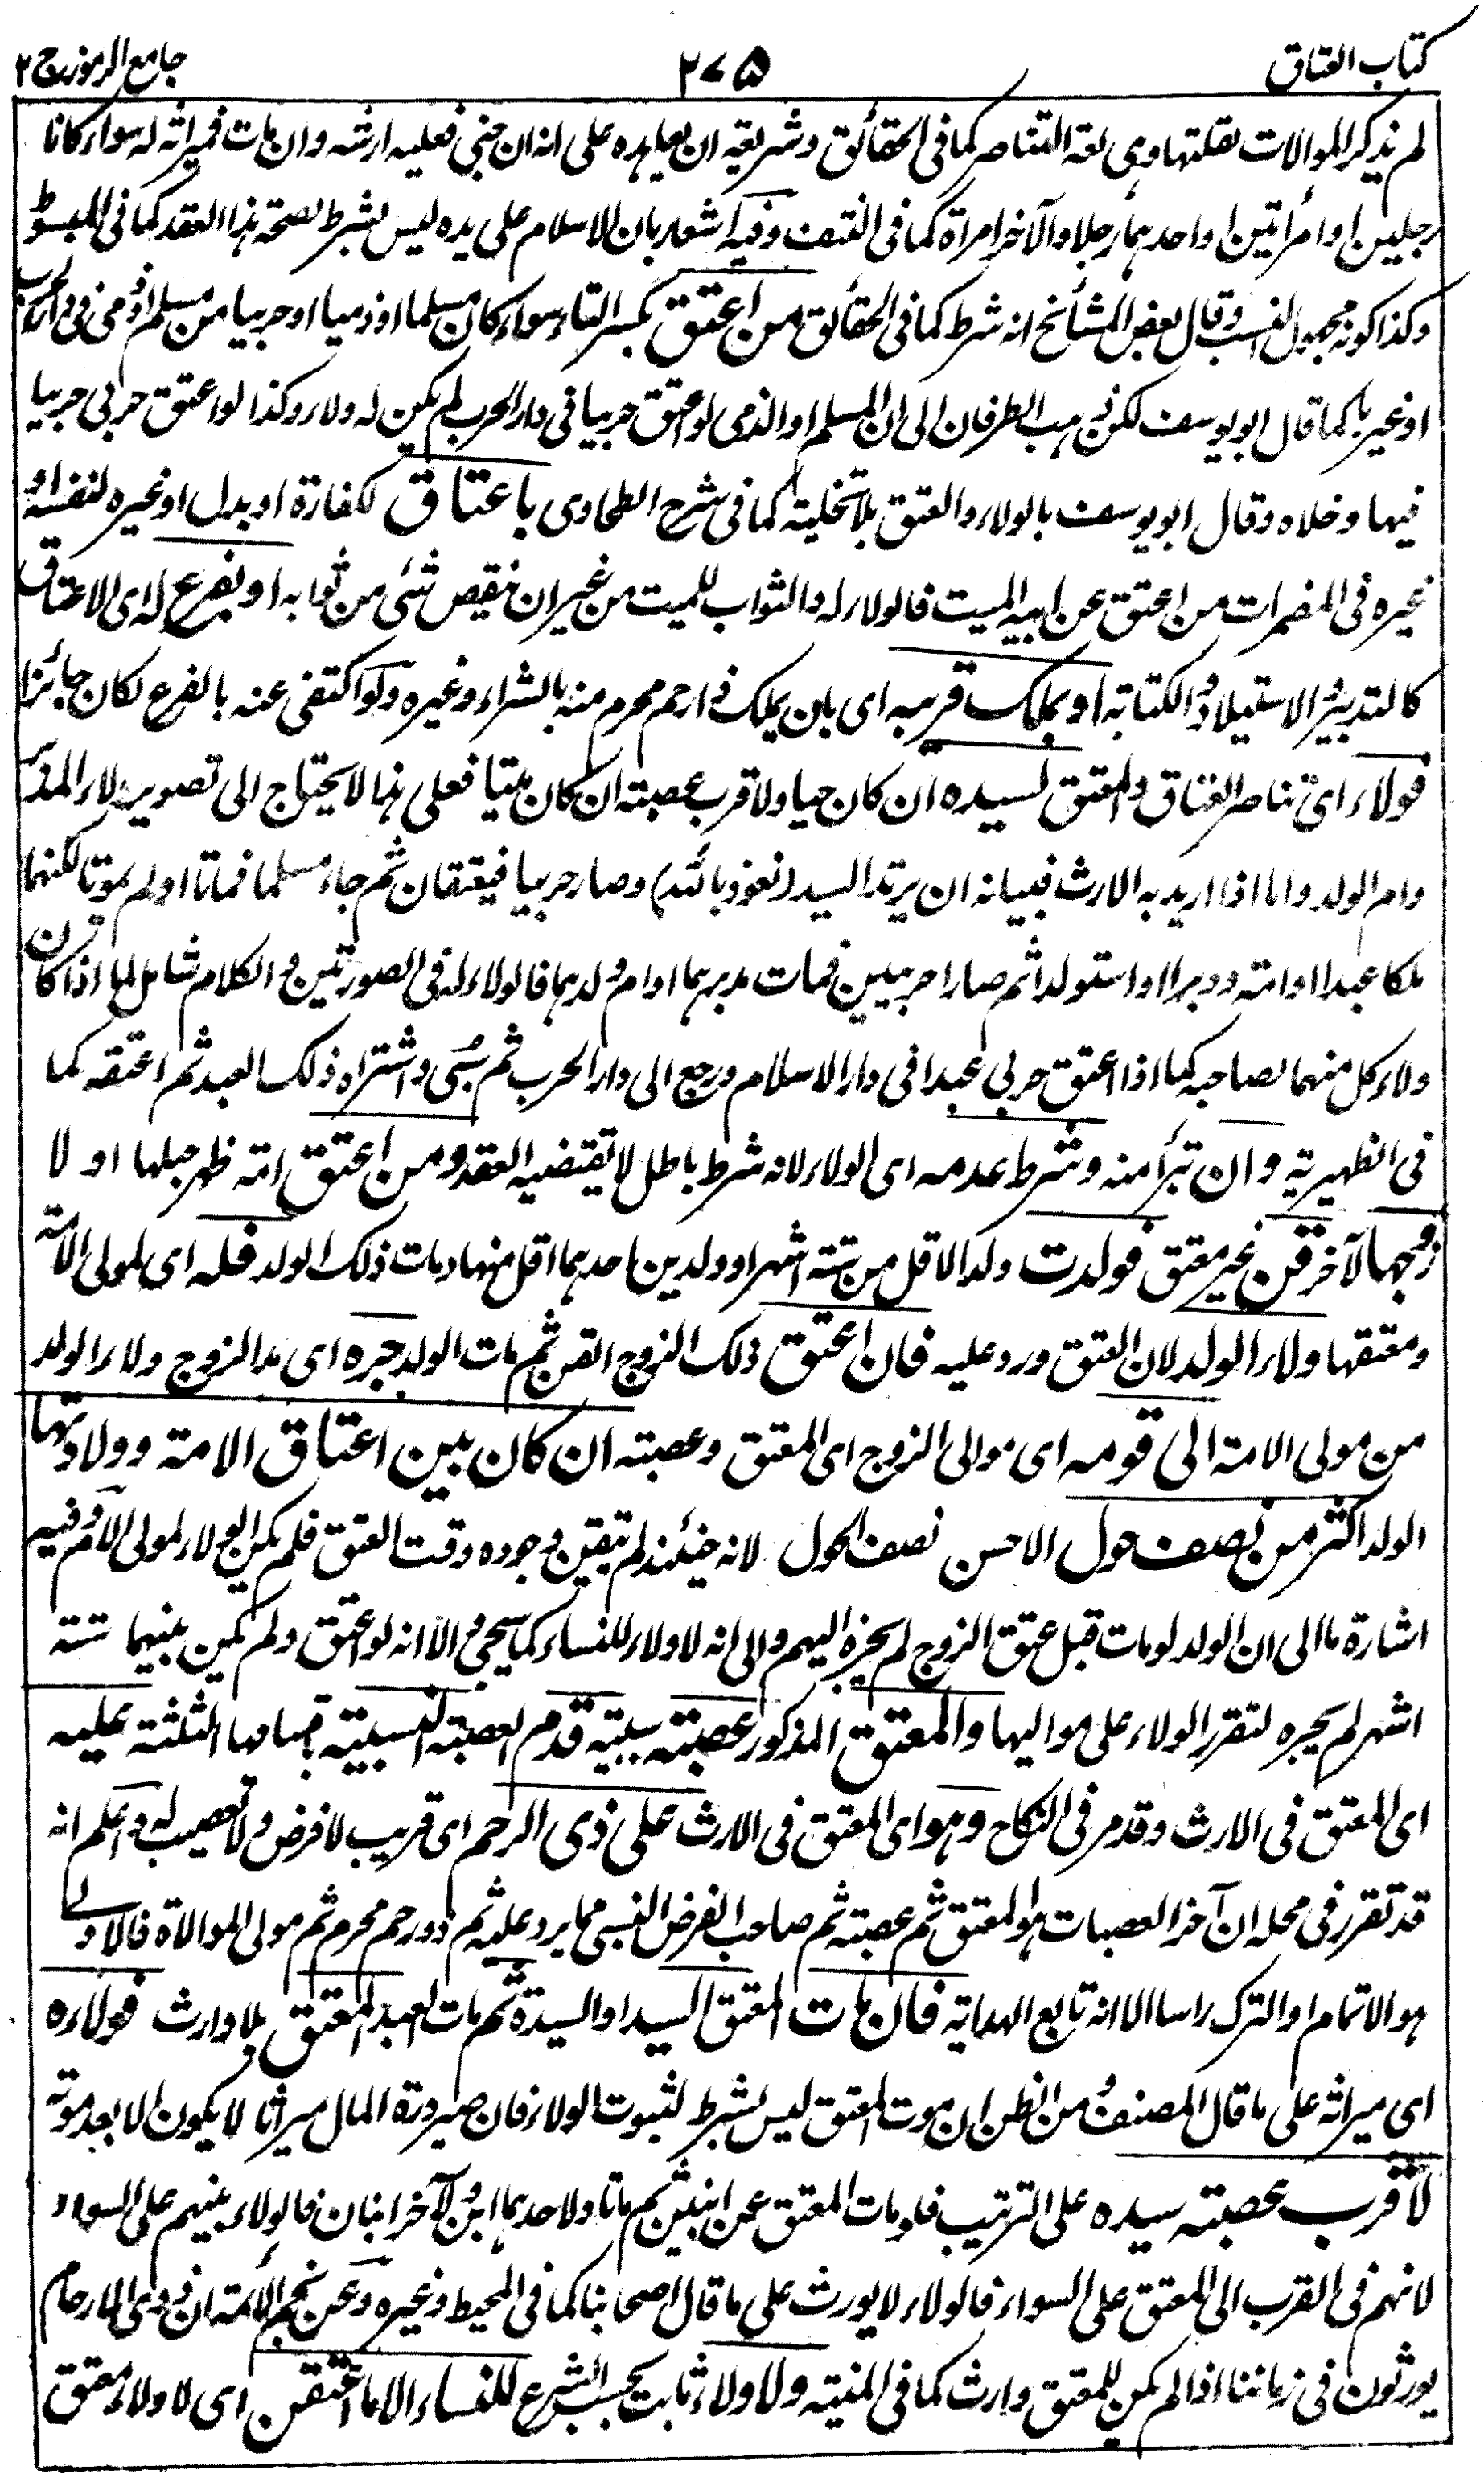 كتاب العتاق ٢٧٥ جامع الرموز ج ٢
لم يذكر الموالات لقلتها وهي لغة التناصر كما في الحقائق وشريعة ان يعاهده على انه ان جنى فعليه ارشه وان مات فميراثه له سواء كانا
رجلين او امرأتين او احدهما رجلا والآخر امرأة كما في النتف وفيه اشعار بان الاسلام على يده ليس بشرط لصحة هذا العقد كما في المبسوط
وكذا كونه مجهول النسب وقال بعض المشائخ انه شرط كما في الحقائق من اعتق بكسر التاء سواء كان مسلما او ذميا او حربيا من مسلم او ذمي في دار الحرب
او غيرها كما قال ابو يوسف لكن ذهب الطرفان الى ان المسلم او الذمي لو اعتق حربيا في دار الحرب لم يكن له ولاء وكذا لو اعتق حربي حربيا
فيها وخلاه وقال ابو يوسف بالولاء والعتق بلا تخلية كما في شرح الطحاوي باعتاق لكفارة او بدل او غيره لنفسه او
غيره في المضمرات من اعتق عن ابيه الميت فالولاء له والثواب للميت من غير ان ينقص شئ من ثوابه او بفرع له اى الاعتاق
كالتدبير والاستيلاد والكتابة او بملك قريبه اى بان يملك ذا رحم محرم منه بالشراء وغيره ولو اكتفى عنه بالفرع لكان جائزا
فولاء اى تناصر العتاق والمعتق لسيده ان كان حيا ولاقرب عصبته ان كان ميتا فعلى هذا لا يحتاج الى تصوير ولاء المدبر
وام الولد واما اذا اريد به الارث فبيانه ان يرتد السيد (نعوذ بالله) وصار حربيا فيعتقان ثم جاء مسلما فماتا او لم يموتا لكنهما
ملكا عبدا او امة ودبرا او استولدا ثم صارا حربيين فمات مدبرهما او ام ولدهما فالولاء له في الصورتين والكلام شامل لما اذا كان
ولاء كل منهما لصاحبه كما اذا اعتق حربي عبدا في دار الاسلام ورجع الى دار الحرب ثم سُبى واشتراه ذلك العبد ثم اعتقه كما
في الظهيرية وان تبرأ منه وشرط عدمه اى الولاء لانه شرط باطل لا يقتضيه العقد ومن اعتق امة ظهر حبلها او لا
زوجها لآخر قن غير معتق فولدت ولدا لاقل من ستة اشهر او ولدين احدهما اقل منها ومات ذلك الولد فله اى لمولى الامة
ومعتقها ولاء الولد لان العتق ورد عليه فان اعتق ذلك الزوج القن ثم مات الولد جره اى هذا الزوج ولاء الولد
من مولى الامة الى قومه اى موالى الزوج اى المعتق وعصبته ان كان بين اعتاق الامة وولادتها
الولد اكثر من نصف حول الاحسن نصف الحول لانه حينئذ لم يتيقن وجوده وقت العتق فلم يكن الولاء لمولى الام وفيه
اشارة ما الى ان الولد لو مات قبل عتق الزوج لم يجره اليهم والى انه لا ولاء للنساء كما سيجئ والا انه لو اعتق ولم يكن بينهما ستة
اشهر لم يجره لتقرر الولاء على مواليها والمعتق المذكور عصبته سببية قدم العصبة النسبية باقسامها الثلثة عليه
اى المعتق في الارث وقد مر في النكاح وهو اى المعتق في الارث على ذى الرحم اى قريب لا فرض ولا تعصيب له واعلم انه
قد تقرر في محله ان آخر العصبات هو المعتق ثم عصبته ثم صاحب الفرض النسبى مما يرد عليه ثم ذو رحم محرم ثم مولى الموالاة فالاولى
هو الاتمام او الترك راسا الا انه تابع الهداية فان مات المعتق السيد او السيدة ثم مات العبد المعتق بلا وارث فولاؤه
اى ميراثه على ما قال المصنف ومن الظن ان موت المعتق ليس بشرط لثبوت الولاء فان صيرورة المال ميراثا لا يكون الا بعد موته
لاقرب عصبة سيده على الترتيب فلو مات المعتق عن ابنين ثم ماتا ولاحدهما ابن وللآخر ابنان فالولاء بينهم على السواء
لانهم في القرب الى المعتق على السواء فالولاء لا يورث على ما قال اصحابنا كما في المحيط وغيره وعن نجم الائمة ان ذوى الارحام
يورثون في زماننا اذا لم يكن للمعتق وارث كما في المنية ولا ولاء ثابت بحسب الشرع للنساء الا ما اعتقن اى لا ولاء معتق